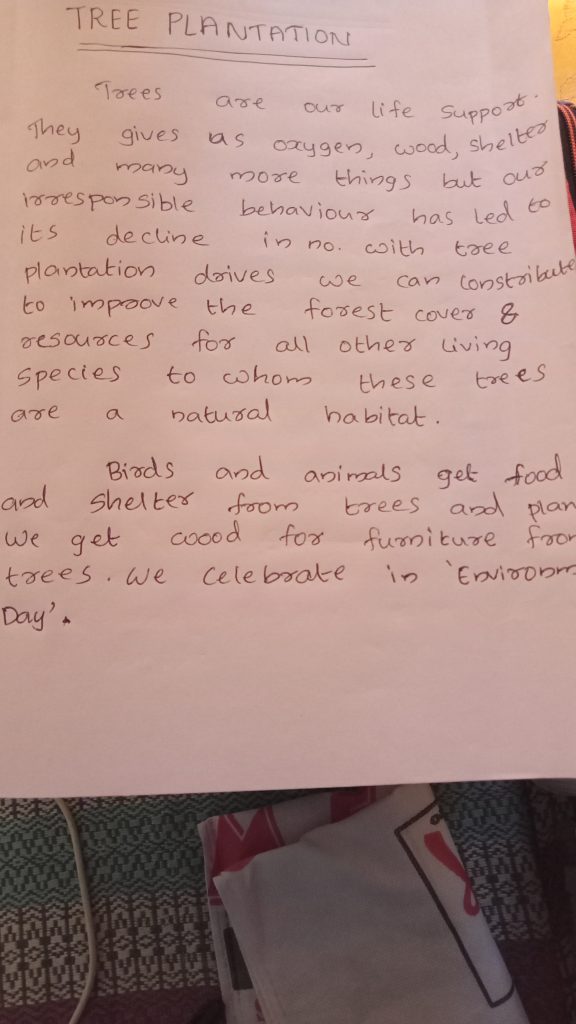 TREE PLANTATION
Trees are our life support.
They gives us oxygen, wood, shelter
and many more things but our
irresponsible behaviour has led to
its decline in no. with tree
plantation drives we can constribute
to improove the forest cover &
resources for all other living
species to whom these trees
are a natural habitat.
Birds and animals get food
and shelter from trees and plan
We get wood for furniture from
trees. We celebrate in 'Environm
Day'.